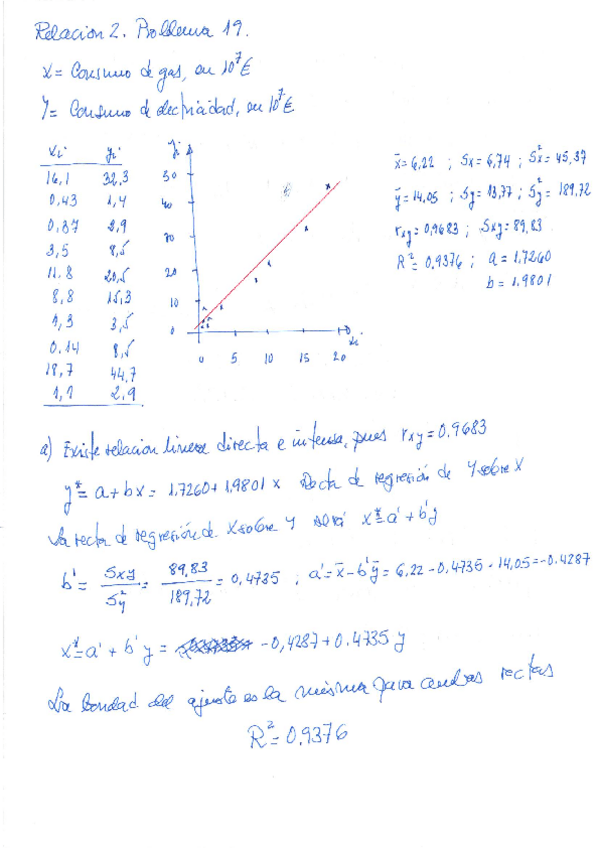 Relacion 2. Problema 19.
X = Consumo de gas, en 10⁷€
Y = Consumo de electricidad, en 10⁷€
xi yi
16,1 32,3
0,43 1,4
0,87 2,9
3,5 8,5
11.8 20,5
8,8 15,3
1,3 3,5
0.14 8,5
18,7 44,7
1,1 2.9
yi
50
40
30
20
10
0
0 5 10 15 20 xi
x̄ = 6,22 ; Sx = 6,74 ; S²x = 45,37
ȳ = 14,05 ; Sy = 13,77 ; S²y = 189,72
rxy = 0,9683 ; Sxy = 89,83
R² = 0.9376 ; a = 1.7260
b = 1.9801
a) Existe relacion lineal directa e intensa, pues rxy = 0.9683
y* = a + bx = 1.7260 + 1.9801 x Recta de regresión de Y sobre X
La recta de regresión de X sobre Y será x* = a' + b'y
b' = Sxy / S²y = 89,83 / 189,72 = 0,4735 ; a' = x̄ - b'ȳ = 6,22 - 0,4735 · 14,05 = -0.4287
x* = a' + b'y = -0,4287 + 0.4735 y
La bondad del ajuste es la misma para ambas rectas
R² = 0.9376